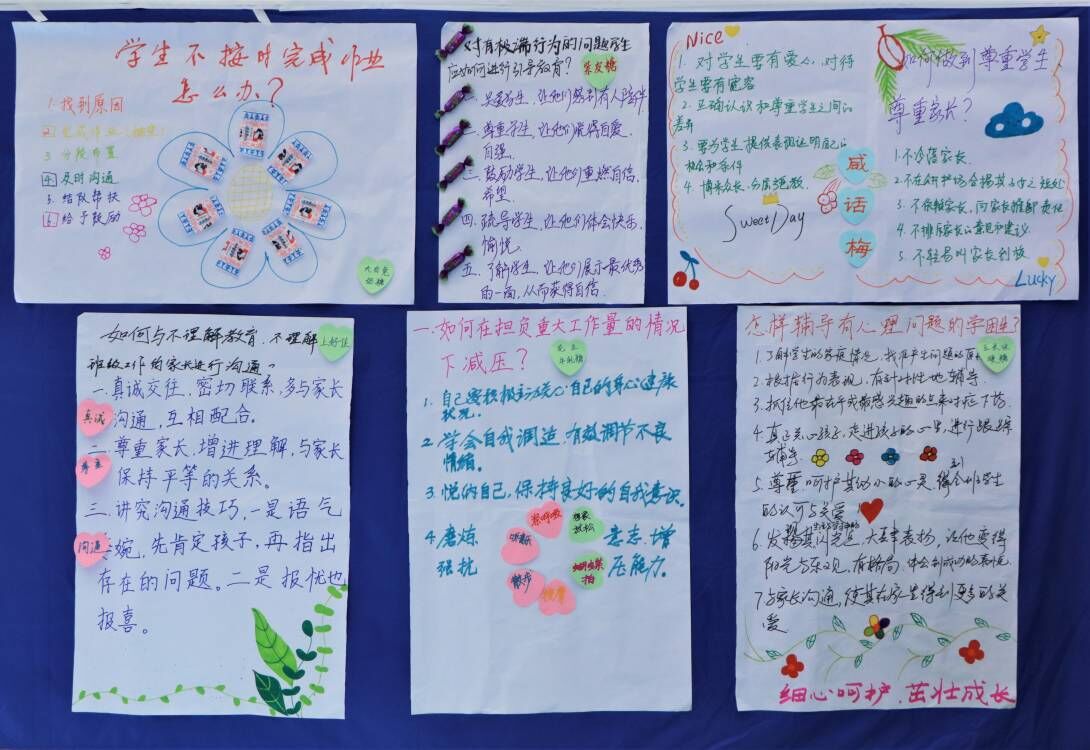 学生不按时完成作业
怎么办?
1.找到原因
3.分段布置
4.及时沟通
5.结队帮扶
6.给予鼓励
大白兔
奶糖
对有极端行为的问题学生
应如何进行引导教育?
棠友糖
一、关爱学生,让他们感到有人陪伴
二、尊重学生,让他们爱
自强.
三、鼓励学生,让他们重燃自信.
希望.
四、疏导学生,让他们体会快乐.
愉悦.
五、了解学生,让他们展示最优秀
的一面,从而获得自信.
Nice
1.对学生要有爱心.对待
学生要有宽容
2.正确认识和尊重学生之间的
差异
3.要为学生提供表现证明自己的
机会和条件
4.博采众长,因
Sweet Day
咸
话
梅
如何做到尊重学生
尊重家长?
1.不冷落家长.
2.不在公共场合揭其子女短处
3.不依赖家长,向家长推卸责任
4.不排斥家长的意见和建议
5.不轻易叫家长到校
Lucky
如何与不理解教育.不理解
班级工作的家长进行沟通。
上好佳
一.真诚交往.密切联系,多与家长
沟通,互相配合。
真诚
二.尊重家长,增进理解,与家长
保持平等的关系。
尊重
三.讲究沟通技巧,一是语气
沟通
委婉,先肯定孩子,再指出
存在的问题。二是报忧也
报喜。
一.如何在担负重大工作量的情况
下减压?
牛轧糖
1.自己要积极主动关心自己的身心健康
状况.
2.学会自我调适.有效调节不良
情绪。
3.悦纳自己,保持良好的自我意识.
4.磨炼 意志.增
强抗 压能力.
深呼吸
放松
听音乐
散步
按摩
拍
怎样辅导有心理问题的学困生?
1.了解学生的家庭情况,找准产生问题的原
2.根据行为表现,有针对性地辅导.
3.抓住他最在乎或最感兴趣的点来对症下药.
4.真正关心孩子,走进孩子的心里,进行跟踪
辅导.
5.尊重呵护其幼小的心灵,得到全班学生
的认可与关爱
6.发现其闪光点,大力表扬,让他变得
7.与家长沟通,使其在家里得到更多的关
爱
细心呵护.茁壮成长